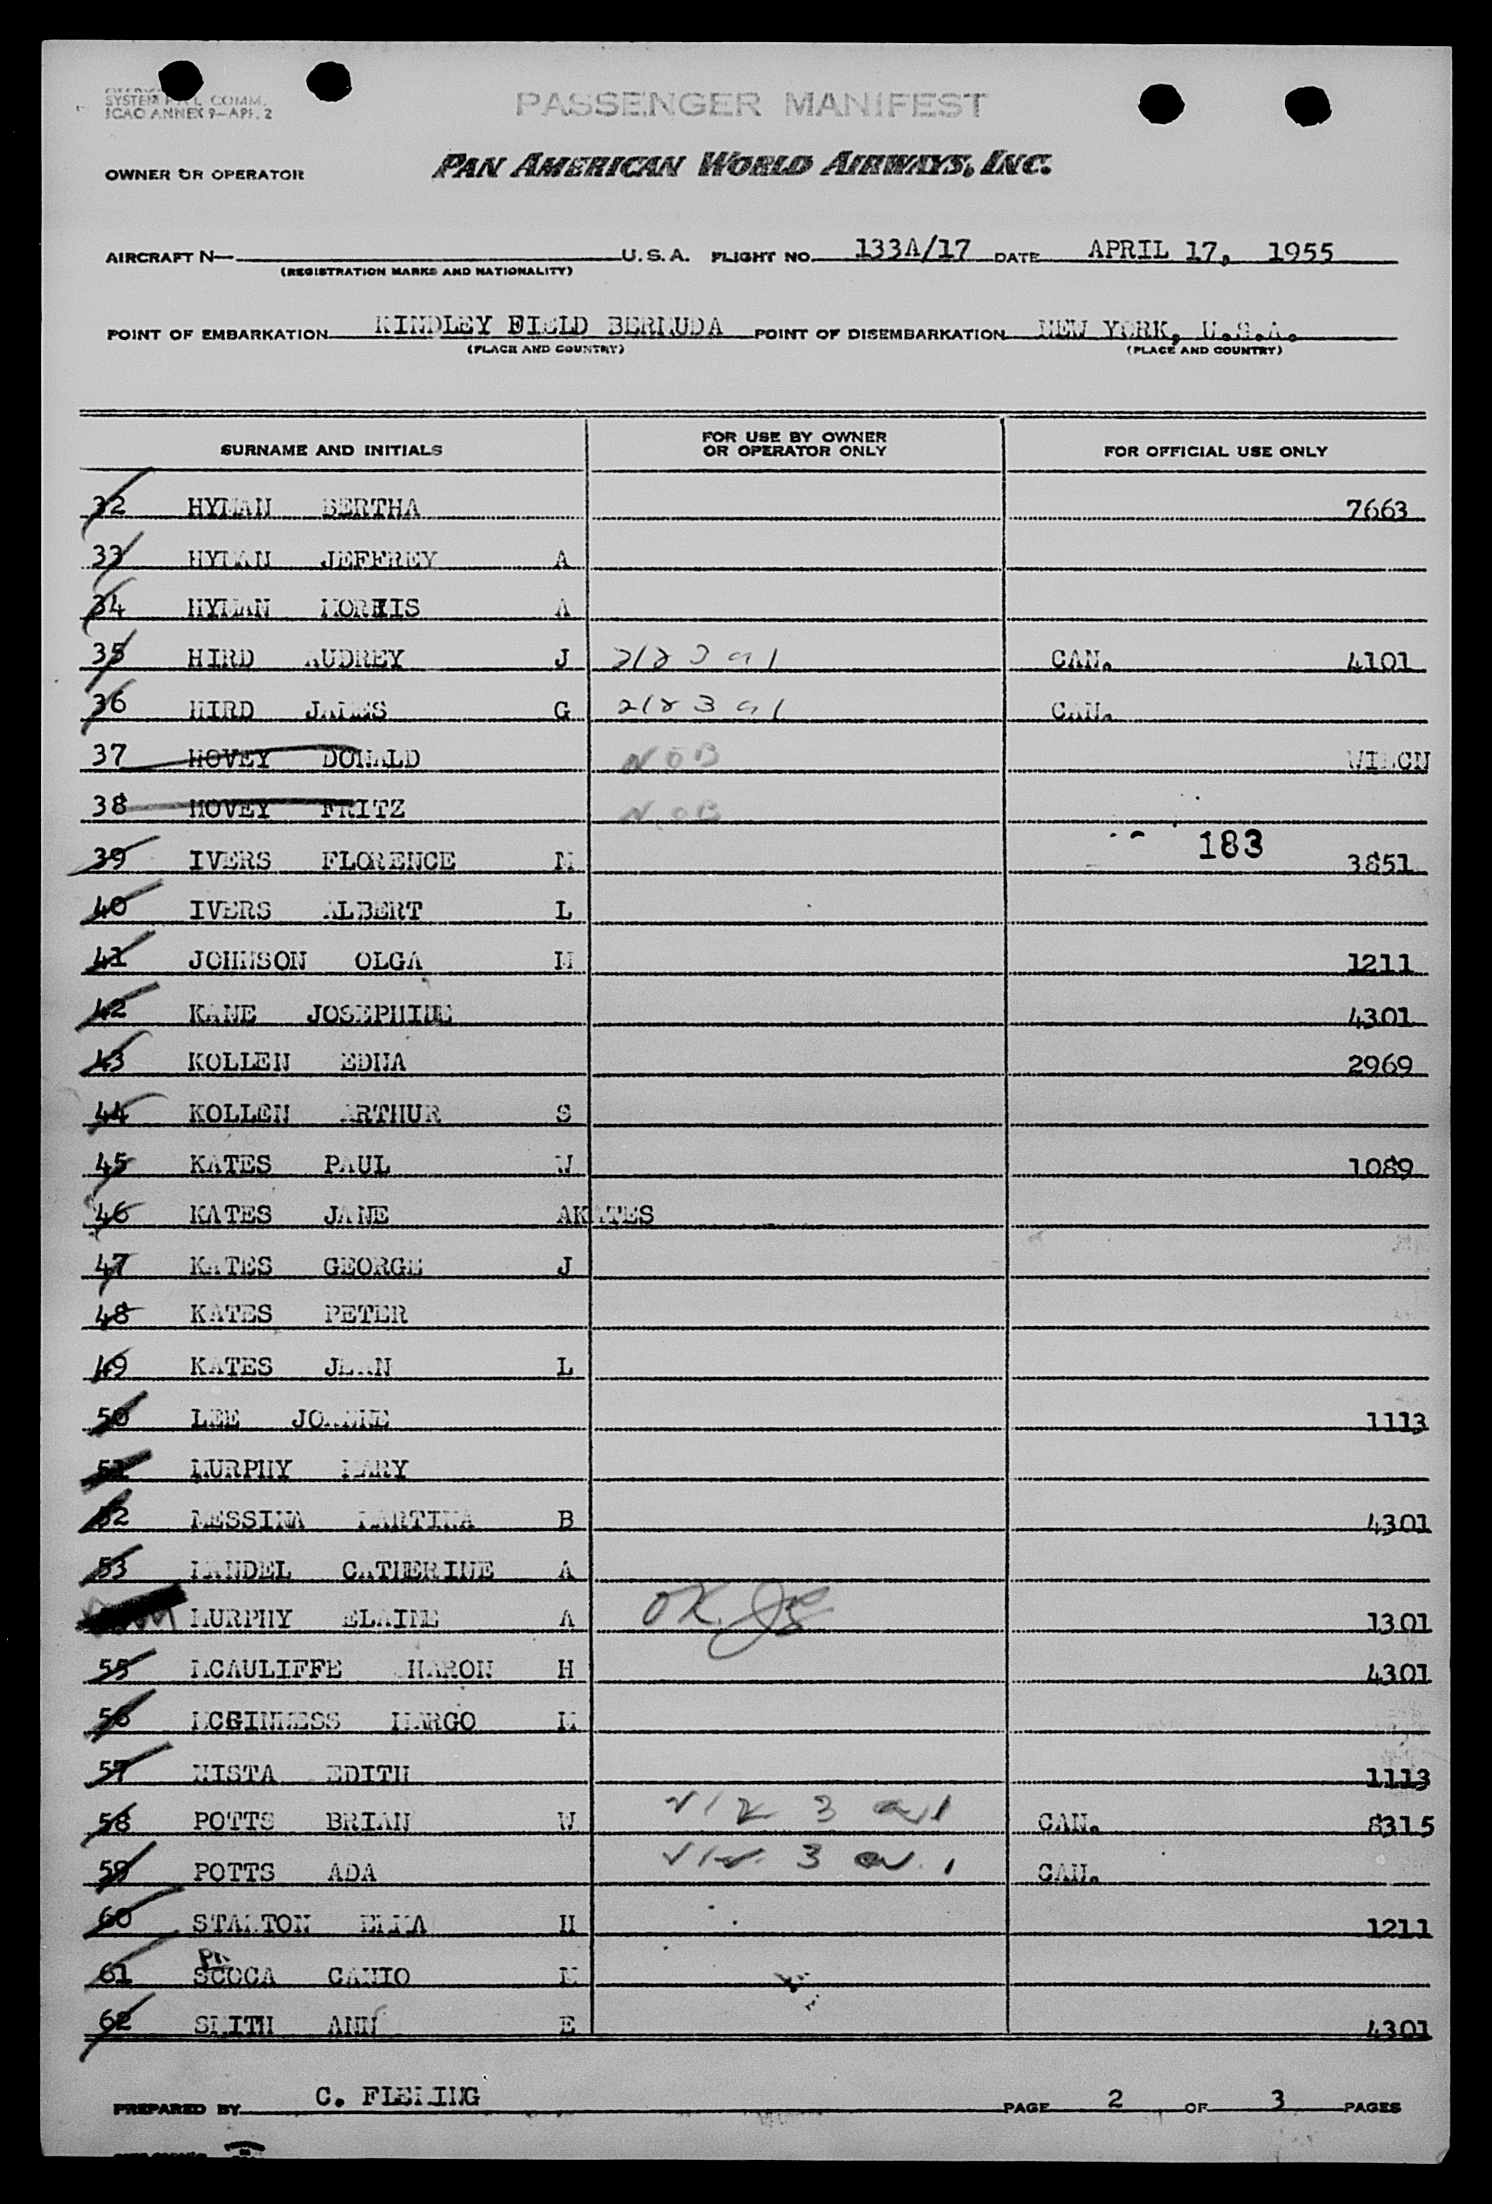 SYSTEM COMM.
ICAO ANNEX 9—APP. 2
PASSENGER MANIFEST
OWNER OR OPERATOR PAN AMERICAN WORLD AIRWAYS, INC.
AIRCRAFT N— U.S.A. FLIGHT NO. 133A/17 DATE APRIL 17, 1955
(REGISTRATION MARKS AND NATIONALITY)
POINT OF EMBARKATION KINDLEY FIELD BERMUDA POINT OF DISEMBARKATION NEW YORK, U.S.A.
(PLACE AND COUNTRY) (PLACE AND COUNTRY)
SURNAME AND INITIALS FOR USE BY OWNER OR OPERATOR ONLY FOR OFFICIAL USE ONLY
32 HYMAN BERTHA 7663
33 HYMAN JEFFREY A
34 HYMAN MORRIS A
35 HIRD AUDREY J CAN. 4101
36 HIRD JAMES G CAN.
37 HOVEY DONALD NOB
38 HOVEY FRITZ N.OB
183
39 IVERS FLORENCE M 3851
40 IVERS ALBERT L
41 JOHNSON OLGA M 1211
42 KANE JOSEPHINE 4301
43 KOLLEN EDNA 2969
44 KOLLEN ARTHUR S
45 KATES PAUL W 1089
46 KATES JANE AKATES
47 KATES GEORGE J
48 KATES PETER
49 KATES JEAN L
50 LEE JOANNE 1113
51 MURPHY MARY
52 MESSINA MARTINA B 4301
53 MANDEL CATHERINE A
MURPHY ELAINE A OK. 1301
55 MCAULIFFE SHARON H 4301
56 MCGINNESS MARGO M
57 NISTA EDITH 1113
58 POTTS BRIAN W CAN. 8315
59 POTTS ADA CAN.
60 STANTON EMMA H 1211
61 SCOCA CANIO M
62 SMITH ANN E 4301
PREPARED BY C. FLEMING PAGE 2 OF 3 PAGES